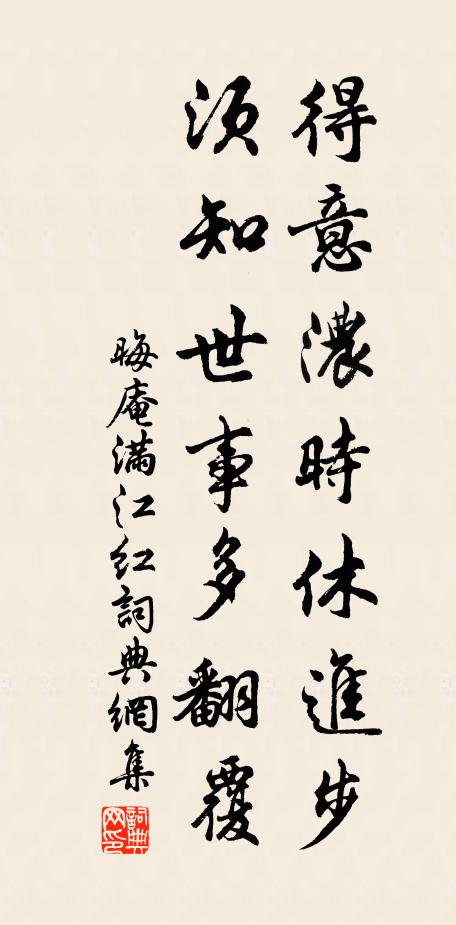 得意濃時休進步
須知世事多翻覆
晦庵滿江红詞典網集
詞典網印